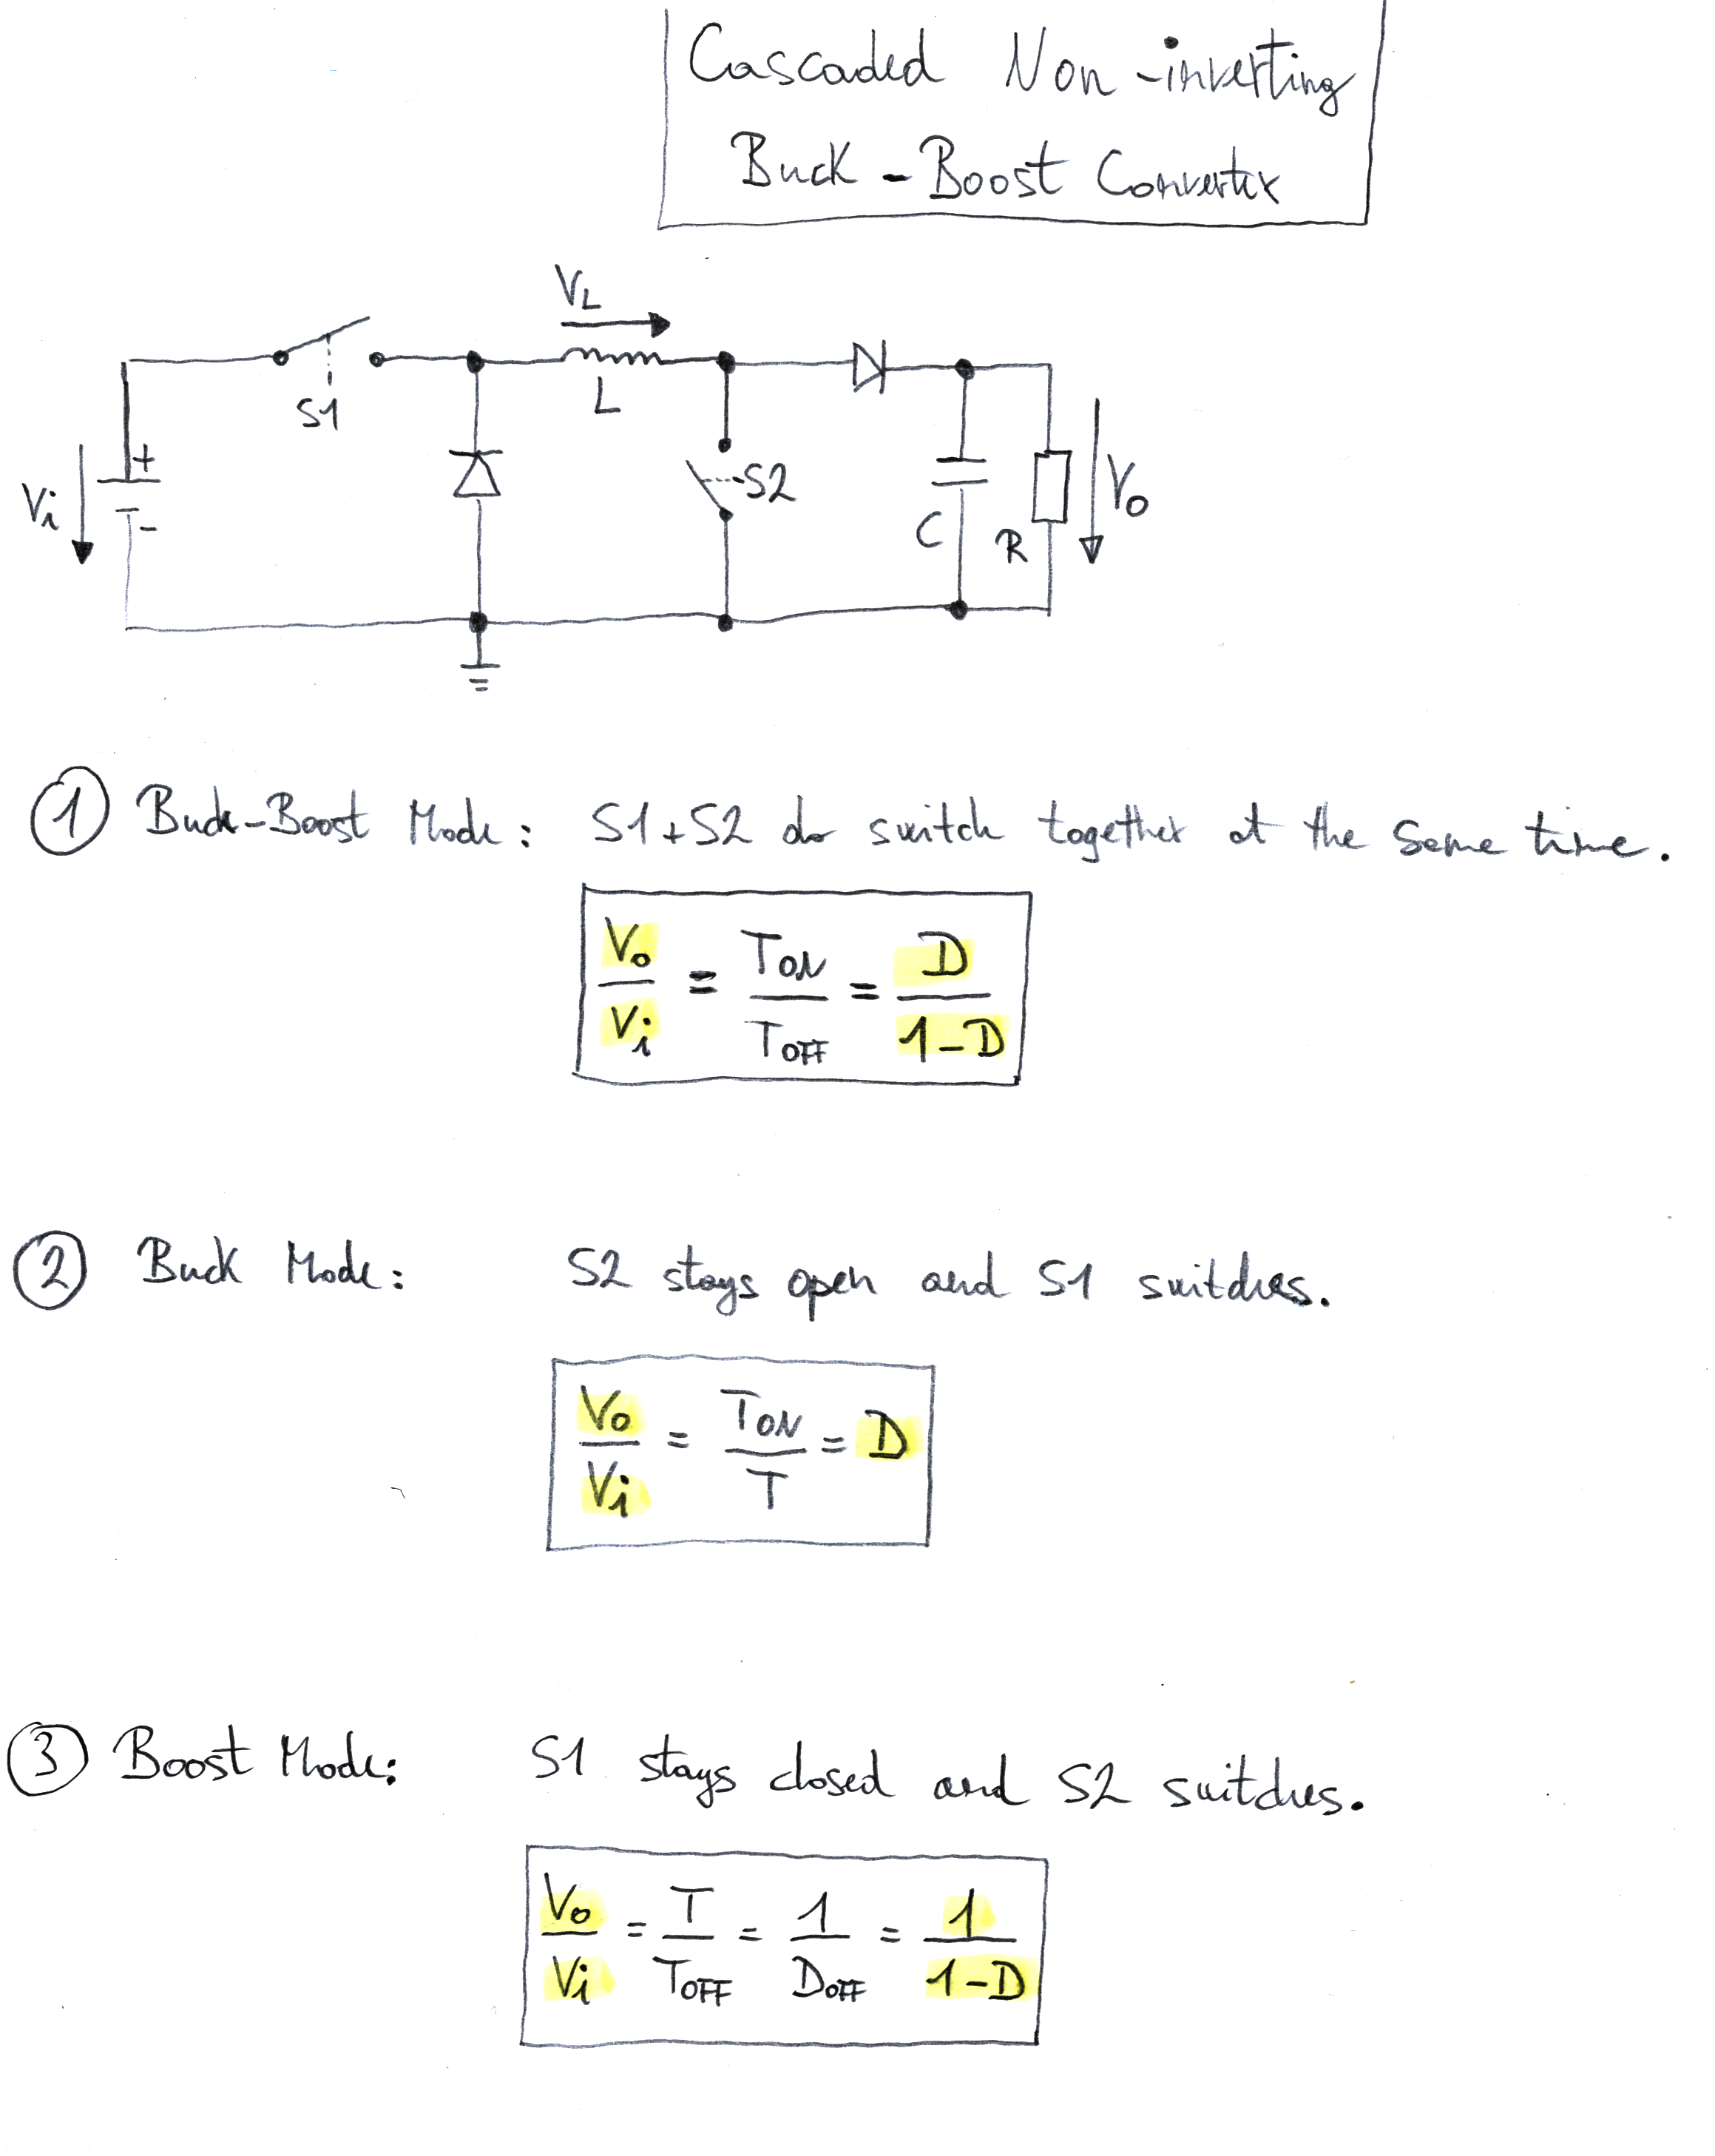 Cascaded Non-inverting
Buck-Boost Converter
VL
S1
L
+
Vi
-
S2
C
R
Vo
1 Buck-Boost Mode: S1+S2 do switch together at the same time.
Vo/Vi = TON/TOFF = D/1-D
2 Buck Mode: S2 stays open and S1 switches.
Vo/Vi = TON/T = D
3 Boost Mode: S1 stays closed and S2 switches.
Vo/Vi = T/TOFF = 1/DOFF = 1/1-D